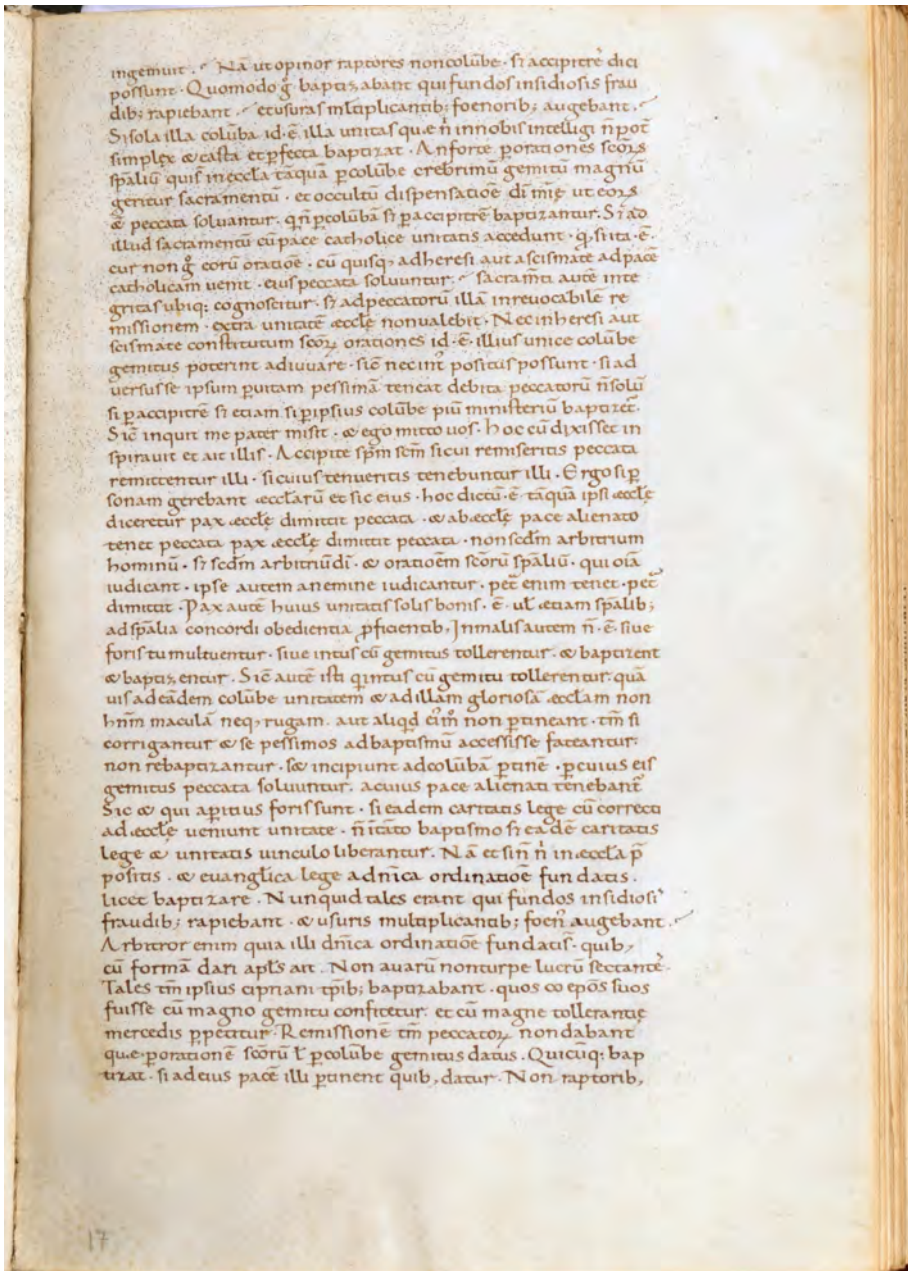 ingemuit. Nā ut opinor raptores noncolūbe · sꝫ accipitrē dici
possunt · Quomodo g̊ baptizabant qui fundos insidiosis frau
dib; rapiebant · et usuras ml̄tiplicantib; foenorib; augebant ·
Sisola illa colūba id · ē illa unitas que n̄ innobis intelligi n̄ pot̄
simplex & casta et ꝑfecta baptizat · An forte ꝑ orationes sc̄oꝝ
sp̄aliū quis in eccl̄a tāquā ꝑcolūbe crebrimū gemitū magnū
geritur sacramentū · et occultū dispensatiōe dī mīę ut eoꝝ
& peccata soluantur · q n̄ ꝑcolūbā sꝫ ꝑ accipitrē baptizantur · Sꝫ ad
illud sacramentū cū pace catholice unitatis accedunt · q, si ita · ē ·
cur non g̊ eorū oratiōe · cū quisq, adheresi aut ascismate adpacē
catholicam uenit · eius peccata soluuntur · sacram̄ti autē inte
gritas ubiq; cognoscitur · sꝫ adpeccatorū illā inreuocabile re
missionem · extra unitatē æccl̄ę nonualebit · Nec in heresi aut
scismate constitutum sc̄oꝝ orationes id · ē · illius unice colūbe
gemitus poterint adiuuare · sic̄ nec int̄ positus possunt · si ad
uersus se ipsum ꝑ uitam pessimā teneat debita peccatorū n̄ solū
si ꝑ accipitrē sꝫ etiam si ꝑ ipsius colūbe piū ministeriū baptizet̄ ·
Sic̄ inquit me pater misit · & ego mitto uos · hoc cū dixisset in
spirauit et ait illis · Accipite sp̄m sc̄m sicui remiseritis peccata
remittentur illi · si cuius tenueritis tenebuntur illi · Ergo si ꝑ
sonam gerebant æccl̄arū et sic eius · hoc dictū · ē tāquā ipsi æccl̄ę
diceretur pax æccl̄ę dimittit peccata · & ab æccl̄ę pace alienato
tenet peccata pax æccl̄ę dimittit peccata · non sc̄dm arbitrium
hominū · sꝫ sc̄dm arbitriū dī · & oratiōem sc̄orū sp̄aliū · qui oīa
iudicant · ipse autem anemine iudicantur · pet̄ enim tenet · pet̄
dimittit · Pax autē huius unitatis solis bonis · ē · ul̄ etiam sp̄alib;
ad sp̄alia concordi obedientia ꝓficientib, In malis autem n̄ · ē · siue
foris tumultuentur · siue intus cū gemitus tollerentur · & baptizent
& baptizentur · Sic̄ autē isti q intus cū gemitu tollerentur quā
uis ad eādem colūbe unitatem & ad illam gloriosā æcclam non
hn̄m maculā neq, rugam · aut aliqd ei̊m̊ non ꝑtineant · tm̄ si
corrigantur & se pessimos ad baptismū accessisse fateantur ·
non rebaptizantur · s& incipiunt ad colūbā ꝑtinē · ꝑ cuius eis
gemitus peccata soluuntur · a cuius pace alienati tenebant̄
Sic & qui apertius foris sunt · si eadem caritatis lege cū correcti
ad æccl̄ę ueniunt unitate · n̄ it̄ato baptismo sꝫ ea dē caritatis
lege & unitatis uinculo liberantur · Nā et si n̄ n̄ in æccl̄a p̄
positis · & euanglica lege ad n̄ica ordinatiōe fundatis ·
licet baptizare · Nunquid tales erant qui fundos insidiosis
fraudib; rapiebant · & usuris multiplicantib; foen̄ augebant ·
Arbitror enim quia illi dn̄ica ordinatiōe fundatis · quib,
cū formā dari apl̄s ait · Non auarū non turpe lucrū sectantē ·
Tales tm̄ ipsius cipriani tp̄ib; baptizabant · quos co epōs suos
fuisse cū magno gemitu confitetur · et cū magne tollerantię
mercedis ꝑpetitur · Remissionē tm̄ peccatoꝝ non dabant
que ꝑ orationē sc̄orū l̄ ꝑcolūbe gemitus datus · Quicūq; bap
tizat · si ad eius pacē illi ꝑtinent quib, datur · Non raptorib,
17